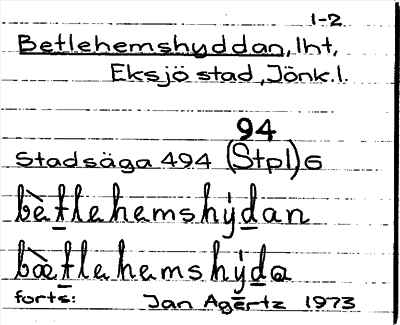 1-2
Betlehemshyddan, lht,
Eksjö stad, Jönk.l.
94
Stadsäga 494 (Stpl) 6
bètlehemshýdan
bætlehemshýda
forts: Jan Agertz 1973